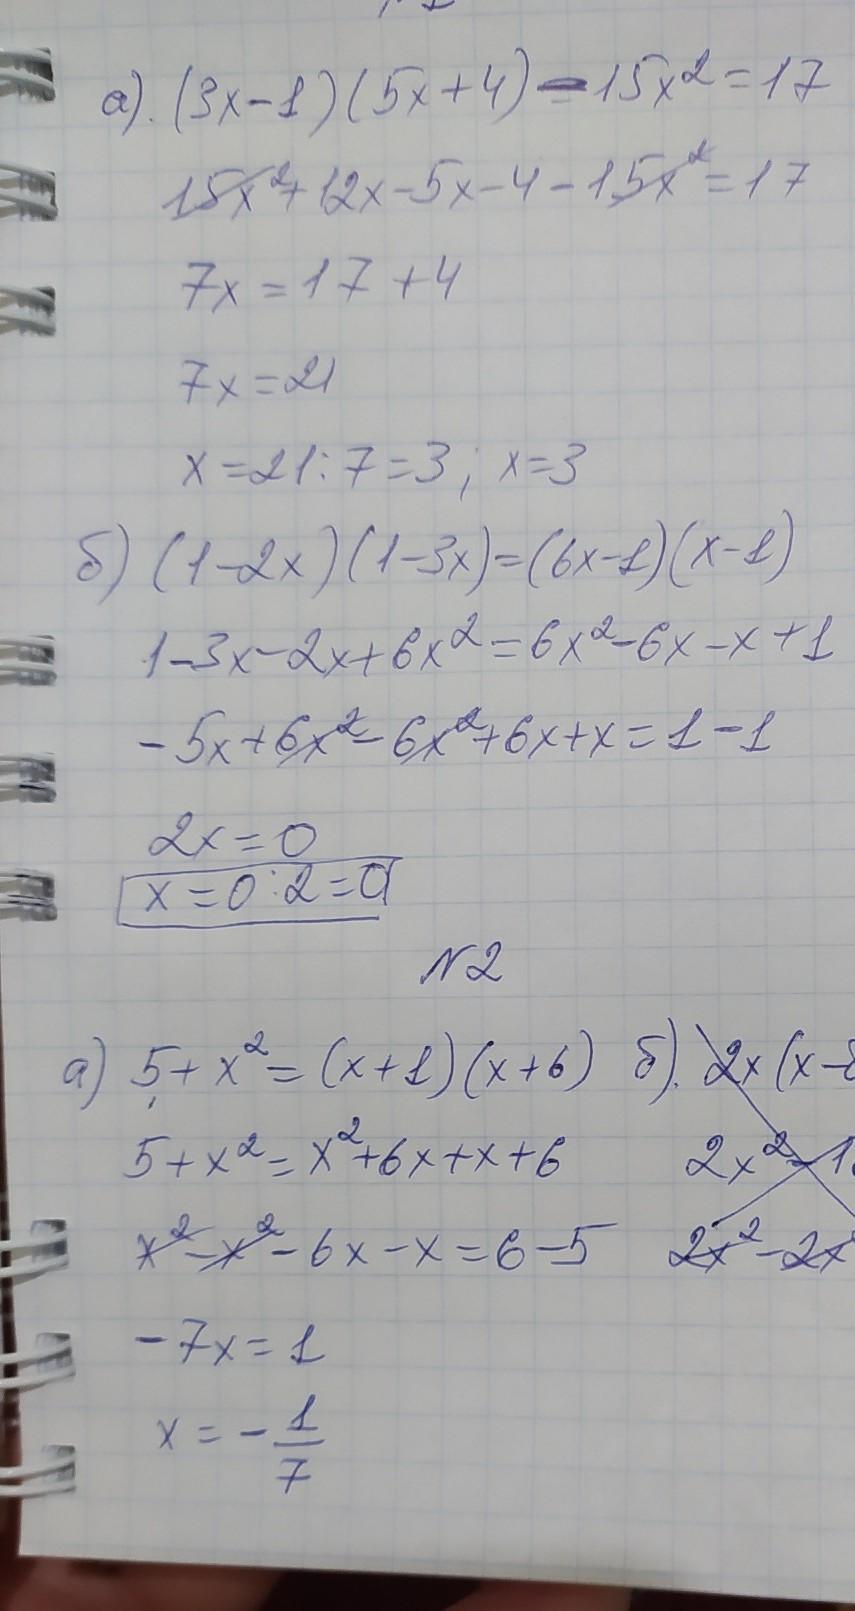 а). (3x-1)(5x+4)-15x²=17
15x²+12x-5x-4-15x²=17
7x=17+4
7x=21
x=21:7=3; x=3
б) (1-2x)(1-3x)=(6x-1)(x-1)
1-3x-2x+6x²=6x²-6x-x+1
-5x+6x²-6x²+6x+x=1-1
2x=0
x=0:2=0
N2
а) 5+x²=(x+1)(x+6)
5+x²=x²+6x+x+6
x²-x²-6x-x=6-5
-7x=1
x=-1/7
б). 2x(x-
2x²-1
2x²-2x